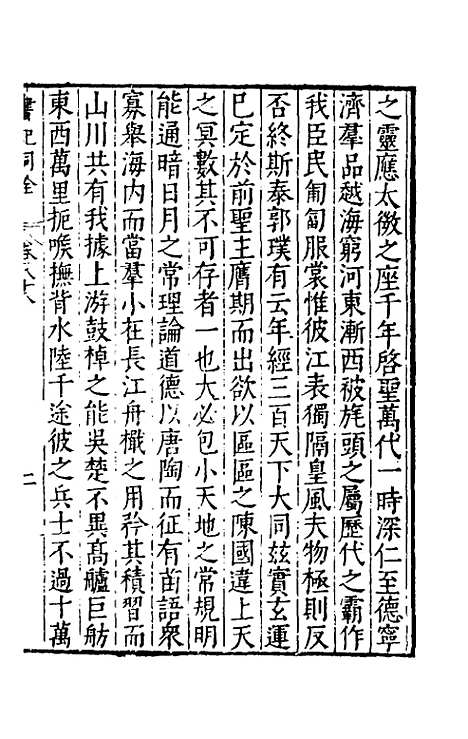 之靈應太微之座千年啓聖萬代一時深仁至德寧
濟羣品越海窮河東漸西被旄頭之屬歷代之霸作
我臣民匍匐服裳惟彼江表獨隔皇風夫物極則反
否終斯泰郭璞有云年經三百天下大同兹實玄運
已定於前聖主膺期而出欲以區區之陳國違上天
之冥數其不可存者一也大必包小天地之常規明
能通暗日月之常理論道德以唐陶而征有苗語衆
寡舉海内而當羣小在長江舟檝之用矜其積習而
山川共有我據上游鼓棹之能吳楚不異髙艫巨舫
東西萬里扼喉撫背水陸千途彼之兵士不過十萬
書記洞詮 卷八十六 二